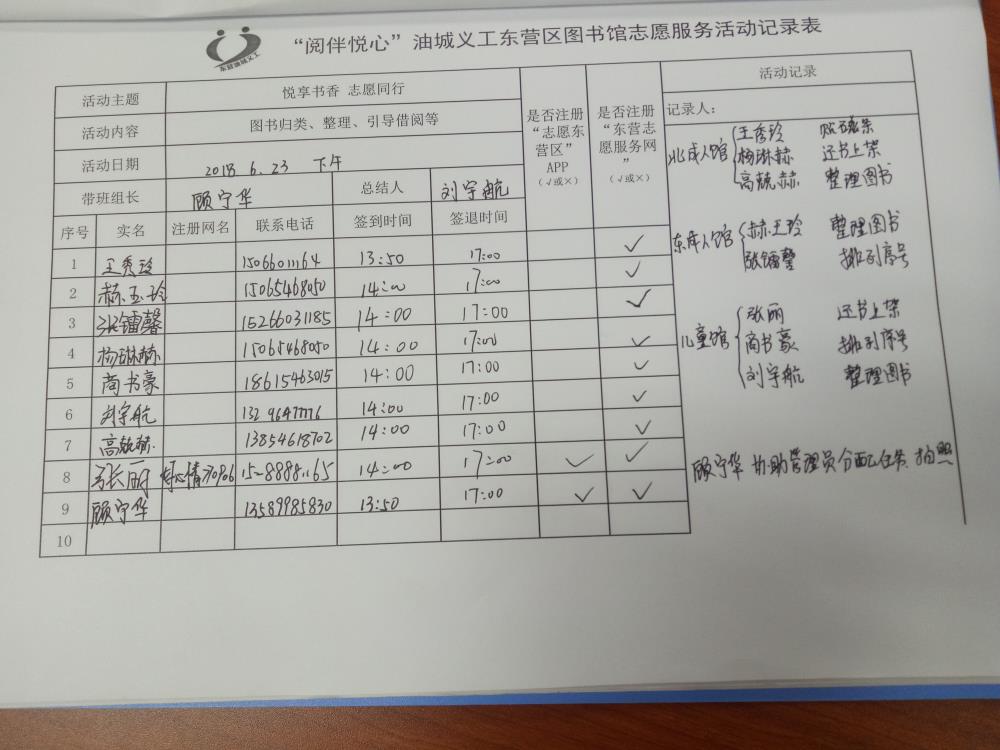 东营油城义工
“阅伴悦心”油城义工东营区图书馆志愿服务活动记录表
活动主题 悦享书香 志愿同行 是否注册“志愿东营区”APP（√或×） 是否注册“东营志愿服务网”（√或×） 活动记录
活动内容 图书归类、整理、引导借阅等 记录人：
活动日期 2018.6.23 下午
带班组长 顾宁华 总结人 刘宇航
序号 实名 注册网名 联系电话 签到时间 签退时间
1 王秀玲 15066011164 13:50 17:00 ✓
2 赫玉玲 15065468050 14:00 17:00 ✓
3 张镭馨 15266031185 14:00 17:00 ✓
4 杨琳赫 15065468050 14:00 17:00 ✓
5 商书豪 18615463015 14:00 17:00 ✓
6 刘宇航 14:00 17:00 ✓
7 13854618702 14:00 17:00 ✓
8 张丽 14:00 17:00 ✓ ✓
9 顾宁华 13589985830 13:50 17:00 ✓ ✓
10
北成人馆 王秀玲
杨琳赫 还书上架
整理图书
东成人馆 赫玉玲 整理图书
张镭馨 排列序号
儿童馆 张丽 还书上架
商书豪 排列序号
刘宇航 整理图书
顾宁华 协助管理员分配任务 拍照